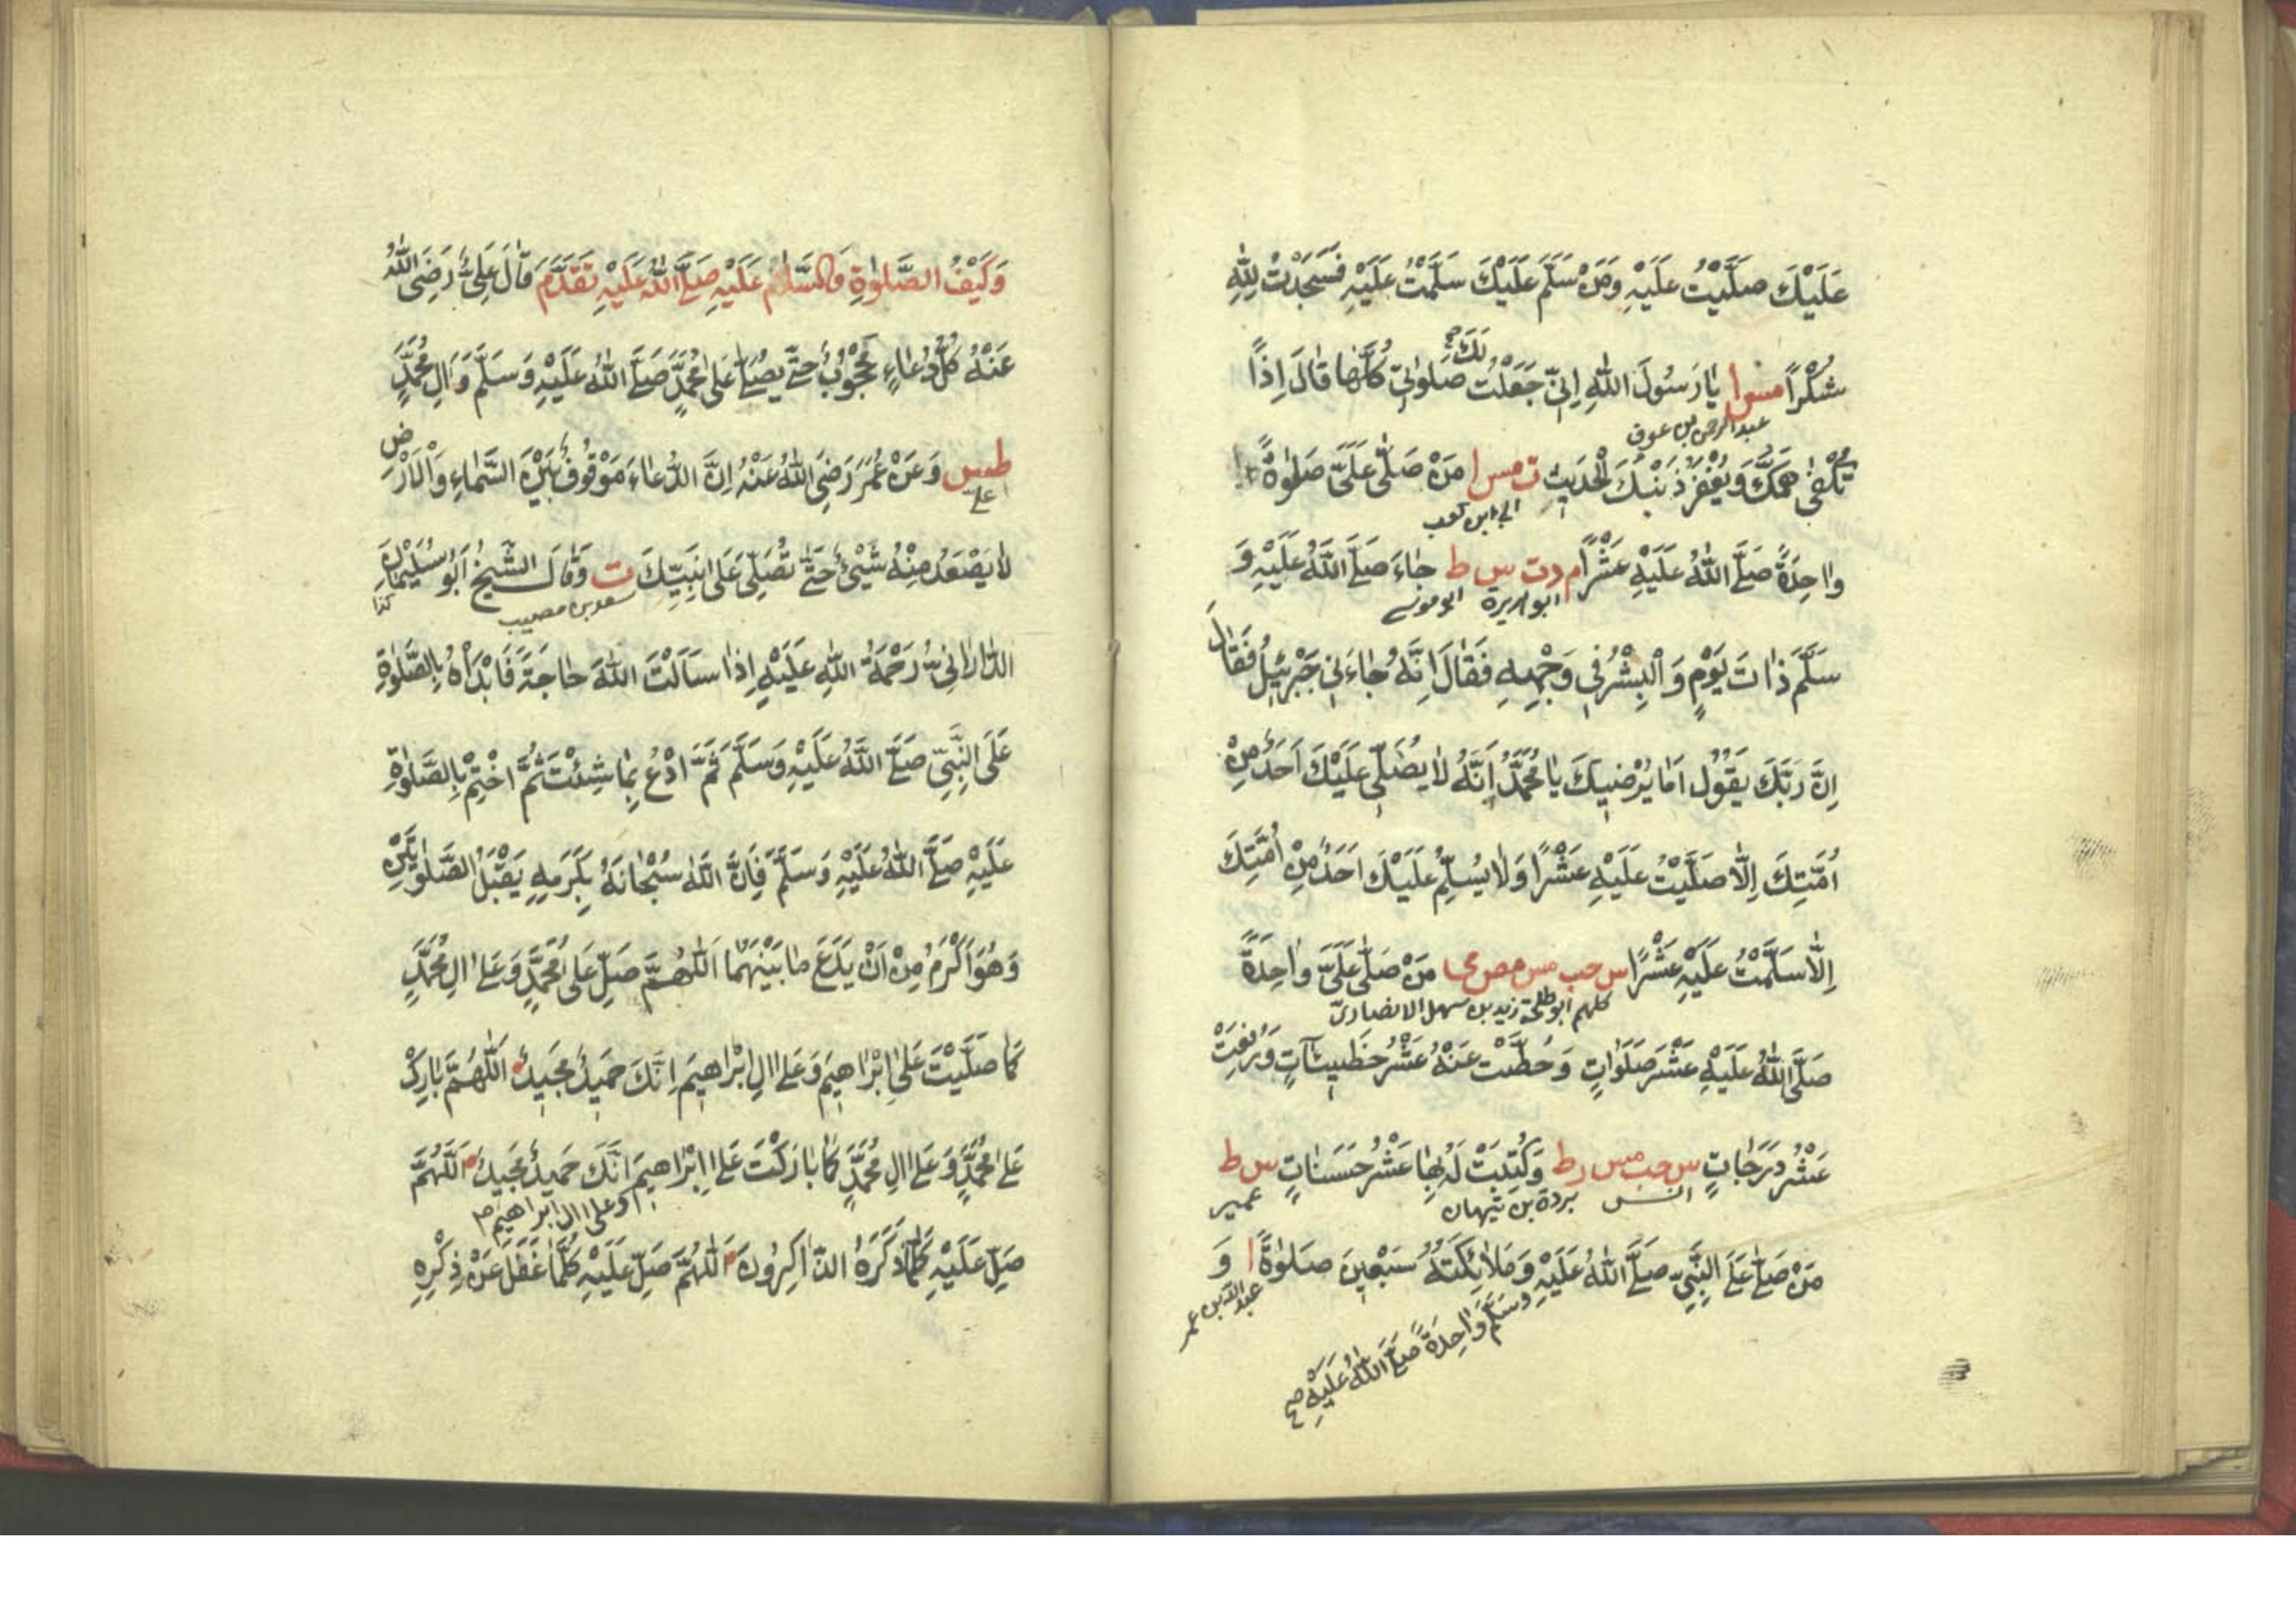 عَلَيْكَ صَلَّيْتُ عَلَيْهِ وَمَنْ سَلَّمَ عَلَيْكَ سَلَّمْتُ عَلَيْهِ فَسَجَدْتُ لِلّٰهِ
شُكْرًا مس ا يَا رَسُولَ اللّٰهِ اِنِّي جَعَلْتُ لَكَ صَلَوٰتِي كُلَّهَا قَالَ اِذًا
عبد الرحمن بن عوف
تُكْفٰى هَمَّكَ وَيُغْفَرُ ذَنْبُكَ الْحَدِيثَ ت مس ا مَنْ صَلّٰى عَلَيَّ صَلٰوةً
ابي ابن كعب
وَاحِدَةً صَلَّى اللّٰهُ عَلَيْهِ عَشْرًا م د ت س ط جَاءَ صَلَّى اللّٰهُ عَلَيْهِ وَ
ابو هريرة ابو موسى
سَلَّمَ ذَاتَ يَوْمٍ وَالْبِشْرُ فِي وَجْهِهِ فَقَالَ اِنَّهُ جَاءَنِي جَبْرَئِيلُ فَقَالَ
اِنَّ رَبَّكَ يَقُولُ اَمَا يُرْضِيكَ يَا مُحَمَّدُ اِنَّهُ لَا يُصَلِّي عَلَيْكَ اَحَدٌ مِنْ
اُمَّتِكَ اِلَّا صَلَّيْتُ عَلَيْهِ عَشْرًا وَلَا يُسَلِّمُ عَلَيْكَ اَحَدٌ مِنْ اُمَّتِكَ
اِلَّا سَلَّمْتُ عَلَيْهِ عَشْرًا س حب مس مص مي مَنْ صَلّٰى عَلَيَّ وَاحِدَةً
كلهم ابو طلحة زيد بن سهل الانصاري
صَلَّى اللّٰهُ عَلَيْهِ عَشْرَ صَلَوَاتٍ وَحُطَّتْ عَنْهُ عَشْرُ خَطِيئَاتٍ وَرُفِعَتْ
عَشْرُ دَرَجَاتٍ س حب مس ر ط وَكُتِبَتْ لَهُ بِهَا عَشْرُ حَسَنَاتٍ س ط
انس بردة بن نيهان عمير
مَنْ صَلّٰى عَلَى النَّبِيِّ صَلَّى اللّٰهُ عَلَيْهِ وَمَلَائِكَتُهُ سَبْعِينَ صَلٰوةً ا وَ
عبد الله بن عمر
وَسَلَّمَ وَاحِدَةً صَلَّى اللّٰهُ عَلَيْهِ صح
وَكَيْفُ الصَّلٰوةِ وَالسَّلَامِ عَلَيْهِ صَلَّى اللّٰهُ عَلَيْهِ تَقَدَّمَ قَالَ عَلِيٌّ رَضِيَ اللّٰهُ
عَنْهُ كُلُّ دُعَاءٍ مَحْجُوبٌ حَتّٰى يُصَلّٰى عَلٰى مُحَمَّدٍ صَلَّى اللّٰهُ عَلَيْهِ وَسَلَّمَ وَاٰلِ مُحَمَّدٍ
طس وَعَنْ عُمَرَ رَضِيَ اللّٰهُ عَنْهُ اِنَّ الدُّعَاءَ مَوْقُوفٌ بَيْنَ السَّمَاءِ وَالْاَرْضِ
علي
لَا يَصْعَدُ مِنْهُ شَيْئٌ حَتّٰى تُصَلِّيَ عَلٰى نَبِيِّكَ ت وَقَالَ الشَّيْخُ اَبُو سُلَيْمَانَ
كذا
الدَّارَانِيُّ رَحْمَةُ اللّٰهِ عَلَيْهِ اِذَا سَاَلْتَ اللّٰهَ حَاجَةً فَابْدَاْهُ بِالصَّلٰوةِ
عَلَى النَّبِيِّ صَلَّى اللّٰهُ عَلَيْهِ وَسَلَّمَ ثُمَّ ادْعُ بِمَا شِئْتَ ثُمَّ اخْتِمْ بِالصَّلٰوةِ
عَلَيْهِ صَلَّى اللّٰهُ عَلَيْهِ وَسَلَّمَ فَاِنَّ اللّٰهَ سُبْحَانَهُ بِكَرَمِهِ يَقْبَلُ الصَّلٰوتَيْنِ
وَهُوَ اَكْرَمُ مِنْ اَنْ يَدَعَ مَا بَيْنَهُمَا اَللّٰهُمَّ صَلِّ عَلٰى مُحَمَّدٍ وَعَلٰى اٰلِ مُحَمَّدٍ
كَمَا صَلَّيْتَ عَلٰى اِبْرَاهِيمَ وَعَلٰى اٰلِ اِبْرَاهِيمَ اِنَّكَ حَمِيدٌ مَجِيدٌ اَللّٰهُمَّ بَارِكْ
عَلٰى مُحَمَّدٍ وَعَلٰى اٰلِ مُحَمَّدٍ كَمَا بَارَكْتَ عَلٰى اِبْرَاهِيمَ اِنَّكَ حَمِيدٌ مَجِيدٌ اَللّٰهُمَّ
وعلى ال ابراهيم
صَلِّ عَلَيْهِ كُلَّمَا ذَكَرَهُ الذَّاكِرُونَ اَللّٰهُمَّ صَلِّ عَلَيْهِ كُلَّمَا غَفَلَ عَنْ ذِكْرِهِ